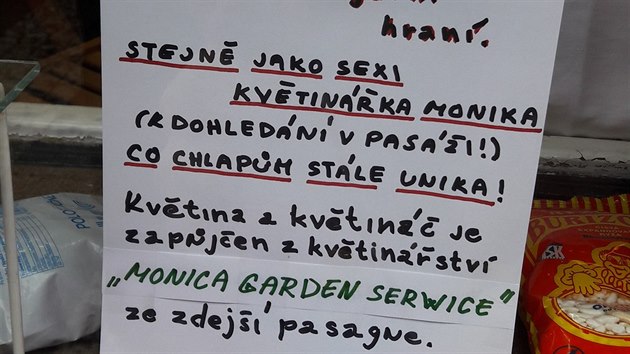 hraní.
STEJNĚ JAKO SEXI
KVĚTINÁŘKA MONIKA
(K DOHLEDÁNÍ V PASÁŽI!)
CO CHLAPŮM STÁLE UNIKA!
Květina a květináč je
zapůjčen z květinářství
„MONICA GARDEN SERWICE"
ze zdejší pasagne.
BURIZO